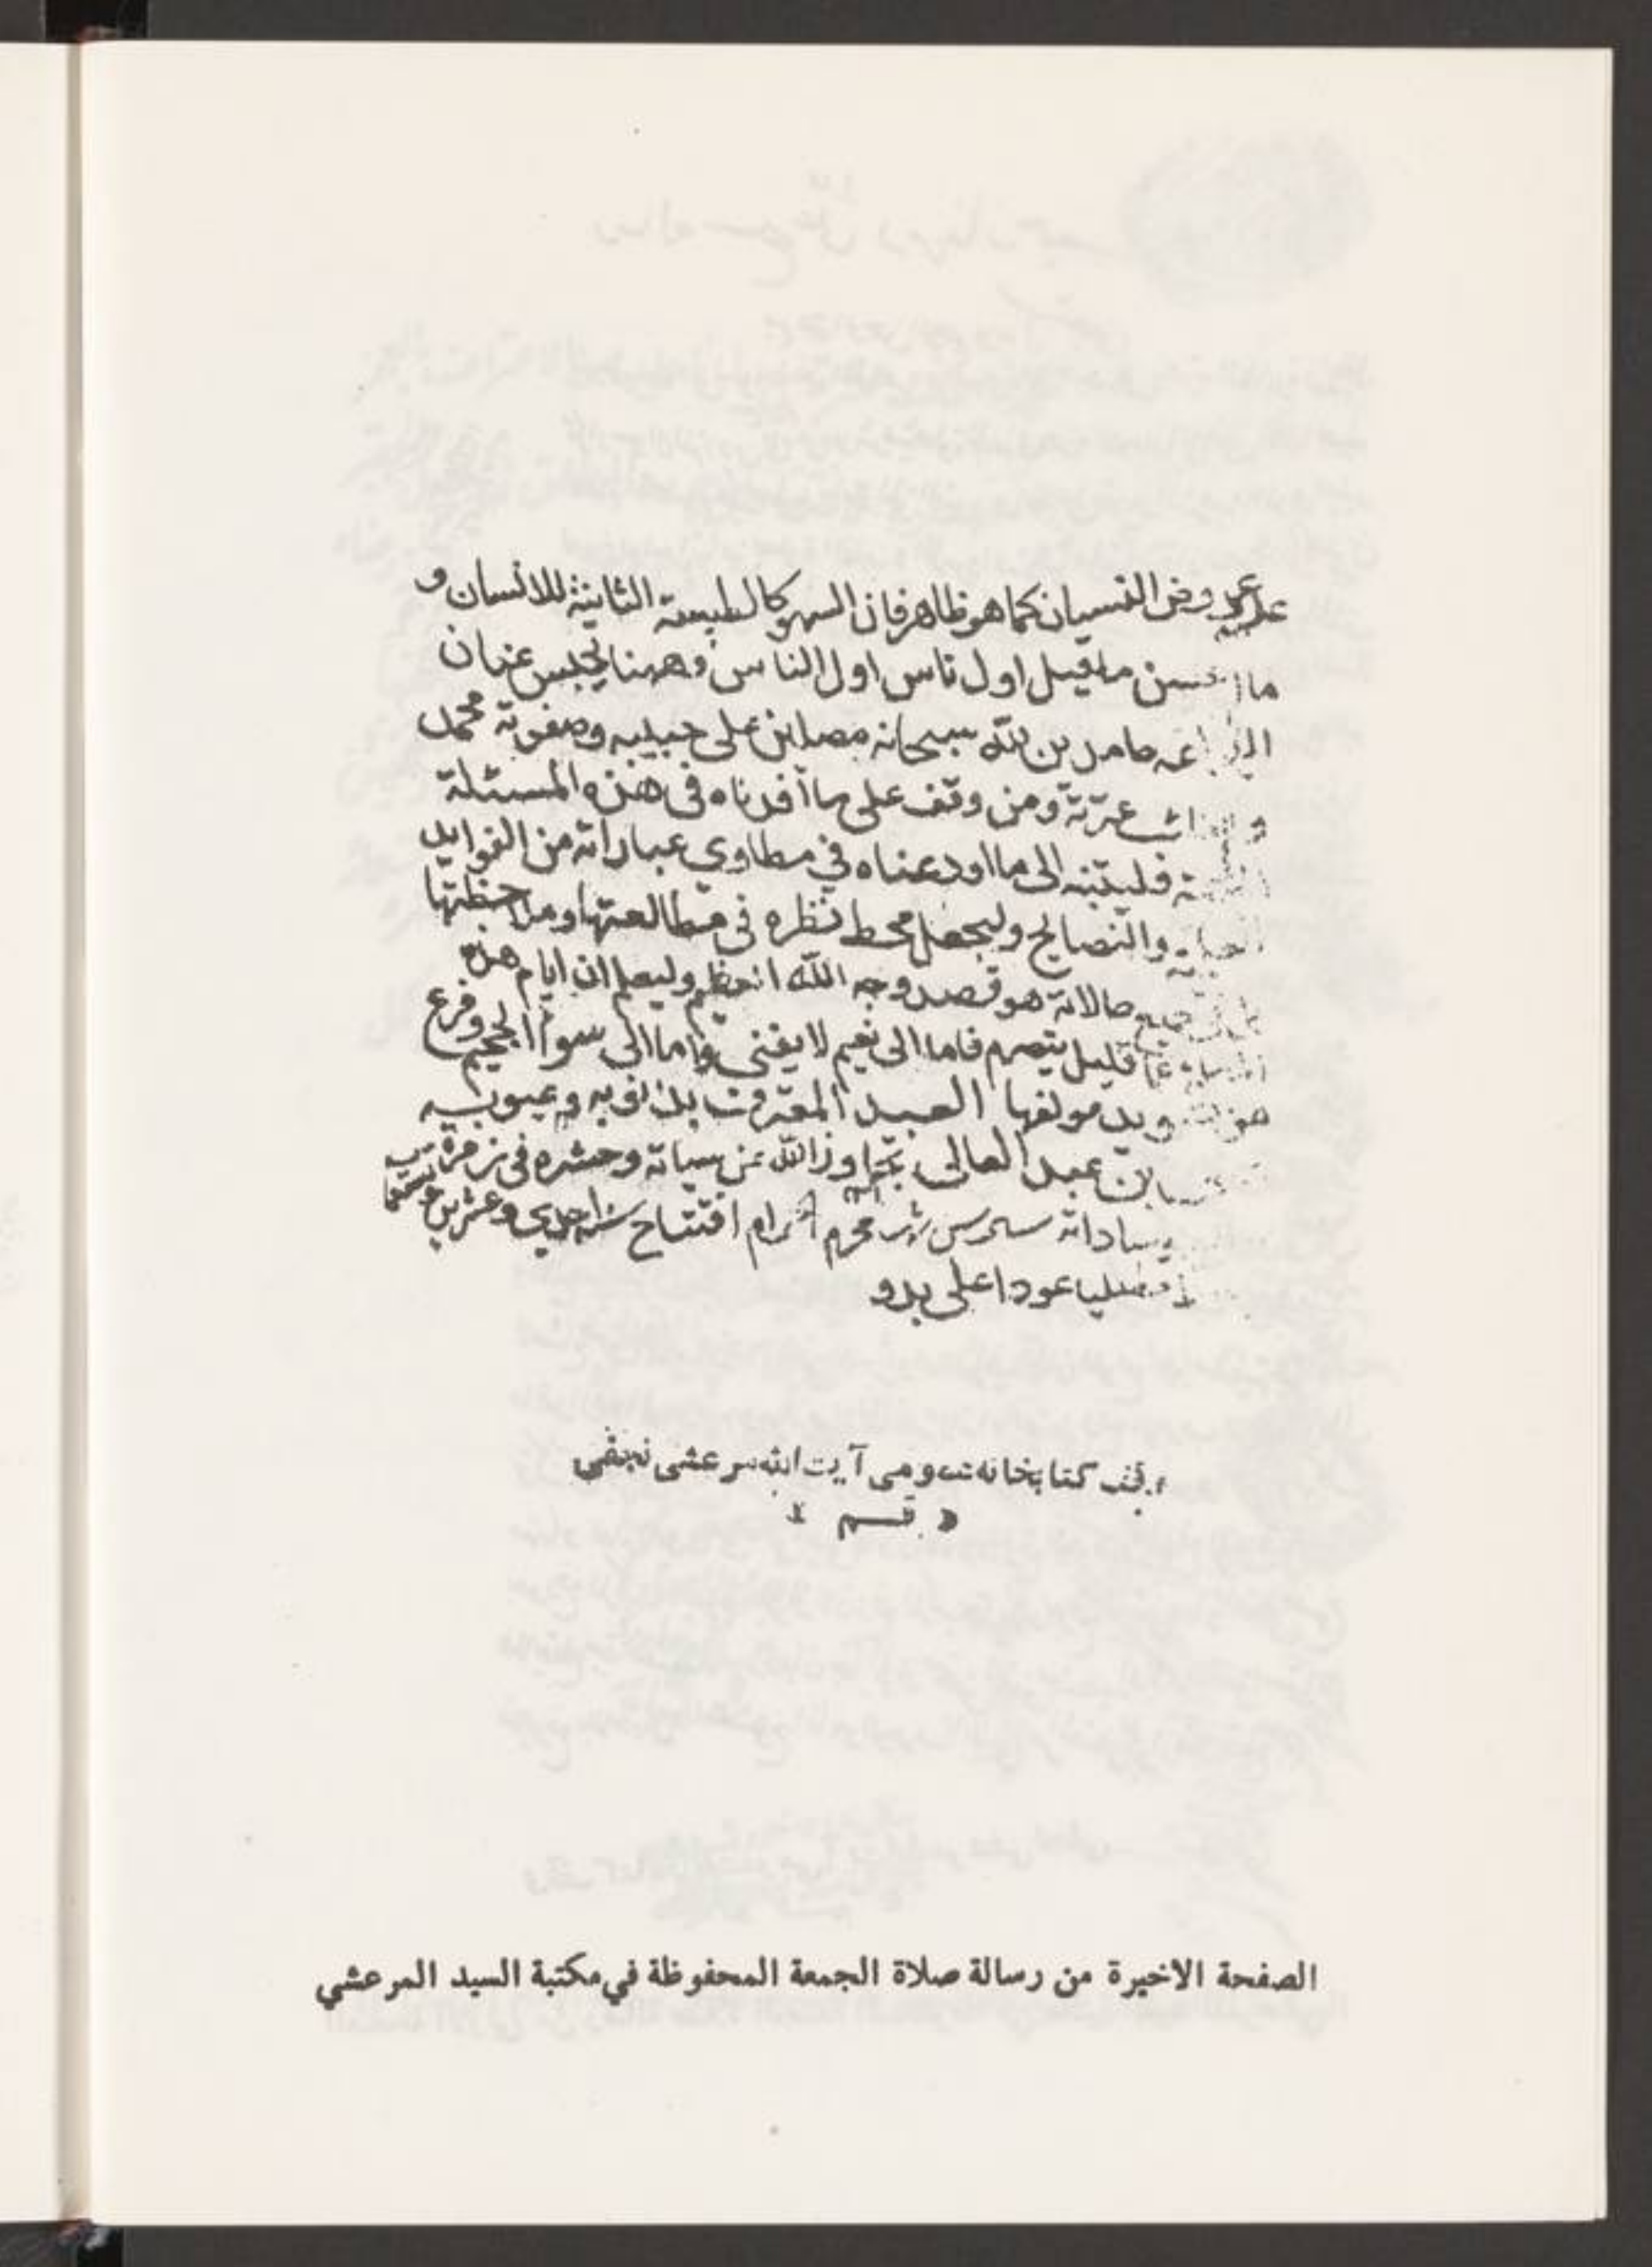 عروض النسيان كما هو ظاهر فان السهو كالطبيعة الثانية للانسان و
ما احسن ما قيل اول ناس اول الناس وههنا يحبس عنان
حامدين لله سبحانه مصلين على حبيبه وصفوته محمد
عترته ومن وقف على ما أفدناه في هذه المسئلة
فليتنبه الى ما اودعناه في مطاوي عباراته من الفوايد
والنصايح وليجعل محط نظره في مطالعتها وملاحظتها
جميع حالاته هو قصد وجه الله العظيم وليعلم ان ايام هذه
قليل يتصرم فاما الى نعيم لا يفنى واما الى سواء الجحيم وفرغ
مولفها العبد المعترف بذنوبه وعيوبه
بن عبد العالى تجاوز الله عن سياته وحشره في زمرة
ساداته محرم الحرام افتتاح سنة احدي وعشرين
مصليا عودا على بدو
وقف كتابخانه عمومى آيت الله مرعشى نجفى
قم
الصفحة الاخيرة من رسالة صلاة الجمعة المحفوظة في مكتبة السيد المرعشي